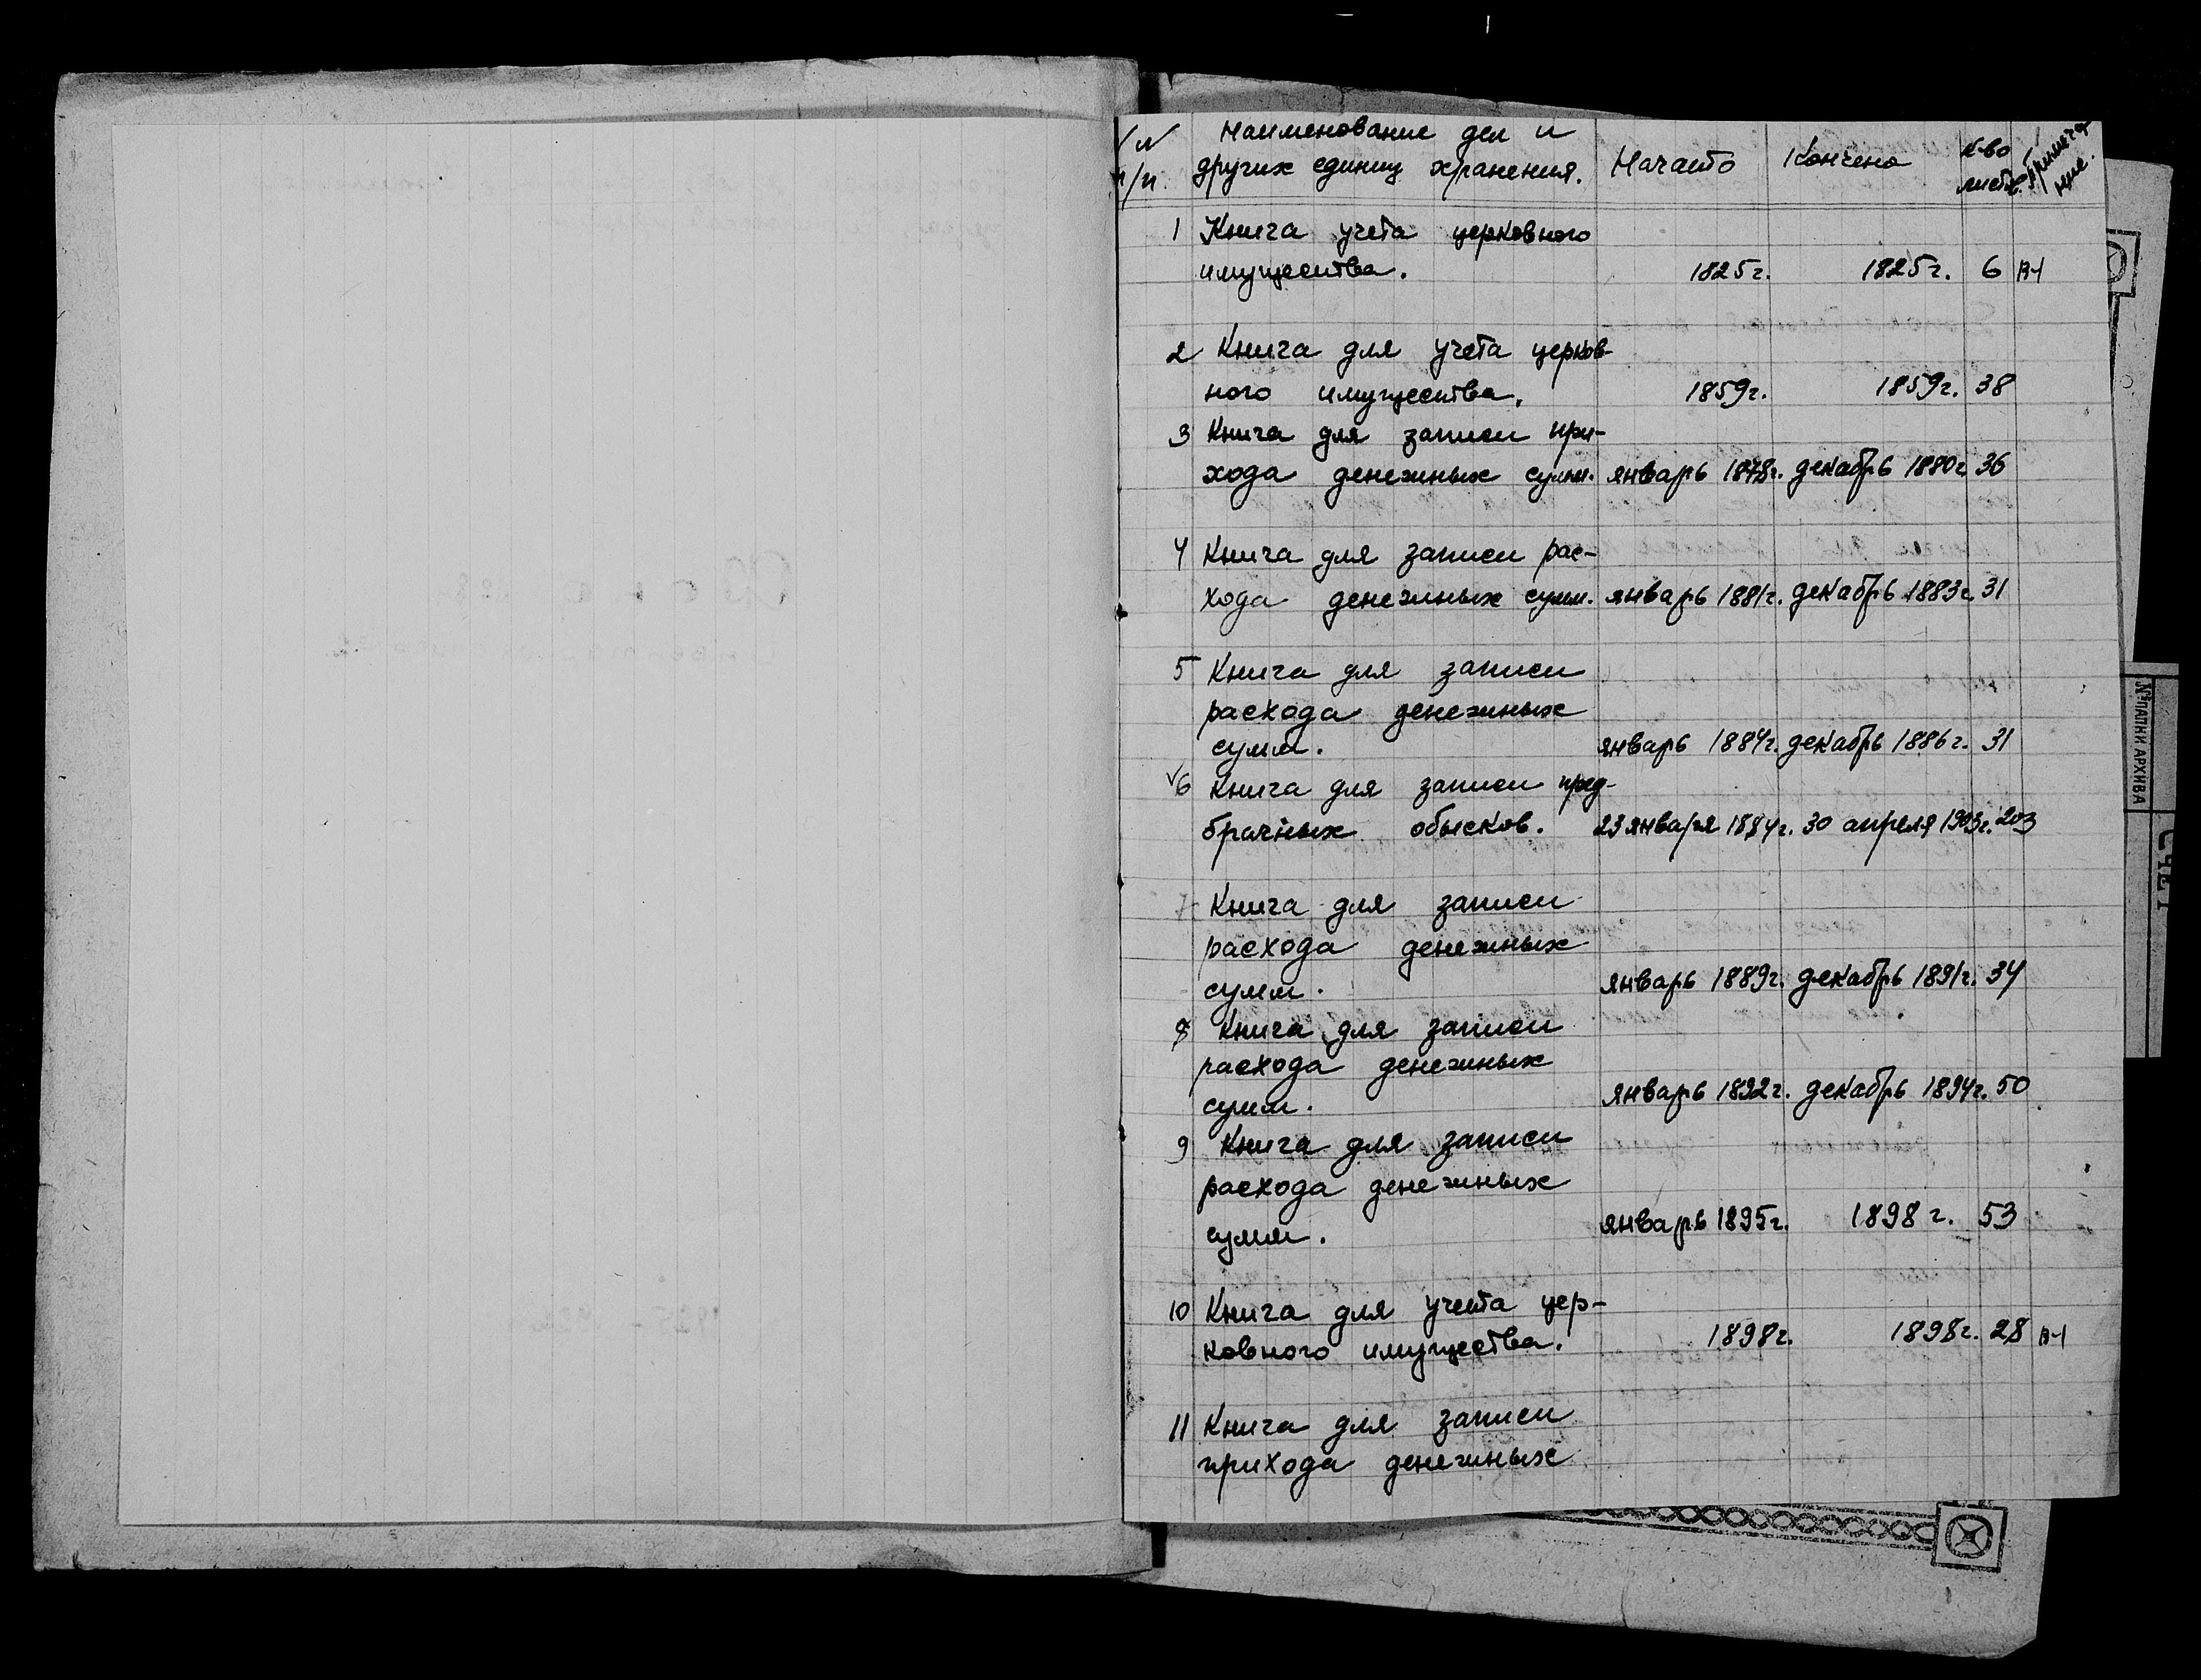 № п/п. Наименование дел и других единиц хранения. Начато Кончено к-во листов. Примеча ние.
1 Книга учета церковного
имущества. 1825г. 1825г. 6
2 Книга для учета церков-
ного имущества. 1859г. 1859г. 38
3 Книга для записи при-
хода денежных сумм. январь 1878г. декабрь 1880г. 36
4 Книга для записи рас-
хода денежных сумм. январь 1881г. декабрь 1883г. 31
5 Книга для записи
расхода денежных
сумм. январь 1884г. декабрь 1886г. 31
6 Книга для записи пред-
брачных обысков. 23 января 1884г. 30 апреля 1903г. 203
7 Книга для записи
расхода денежных
сумм. январь 1889г. декабрь 1891г. 34
8 Книга для записи
расхода денежных
сумм. январь 1892г. декабрь 1894г. 50
9 Книга для записи
расхода денежных
сумм. январь 1895г. 1898г. 53
10 Книга для учета цер-
ковного имущества. 1898г. 1898г. 28
11 Книга для записи
прихода денежных
№ ПАПКИ АРХИВА
СЧЕТ